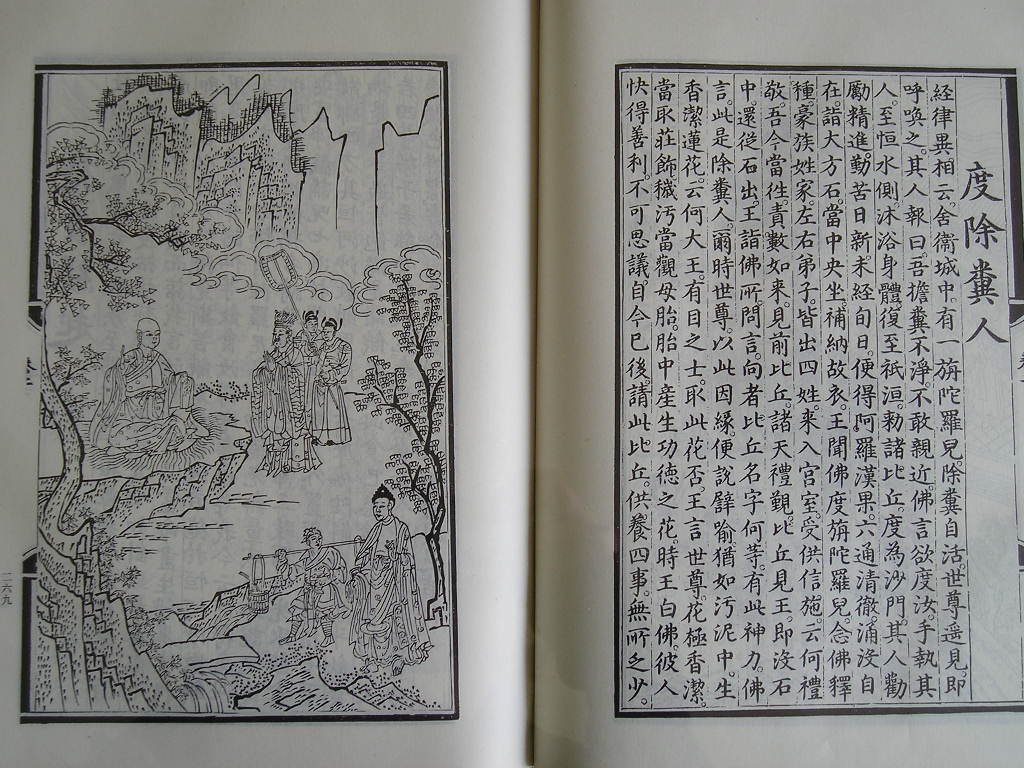 度除糞人
經律異相云。舍衛城中。有一旃陀羅兒。除糞自活。世尊遥見。即
呼喚之。其人報曰。吾擔糞不淨。不敢親近。佛言欲度汝。手執其
人。至恒水側。沐浴身體。復至祇洹。勅諸比丘。度為沙門。其人勸
勵精進。勤苦日新。未經旬日。便得阿羅漢果。六通清徹。涌沒自
在。詣大方石。當中央坐。補納故衣。王聞佛度旃陀羅兒。念佛釋
種。豪族姓家。左右弟子。皆出四姓。來入宮室。受供信施。云何禮
敬。吾今當徃。責數如來。見前比丘。諸天禮覲。比丘見王。即沒石
中。還從石出。王詣佛所。問言。向者比丘。名字何等。有此神力。佛
言。此是除糞人。爾時世尊。以此因緣。便說譬喻。猶如汚泥中。生
香潔蓮花。云何大王。有目之士。取此花否。王言世尊。花極香潔。
當取莊飾。穢汚當觀母胎。胎中產生功德之花。時王白佛。彼人
快得善利。不可思議。自今已後。請此比丘。供養四事。無所乏少。
二六九